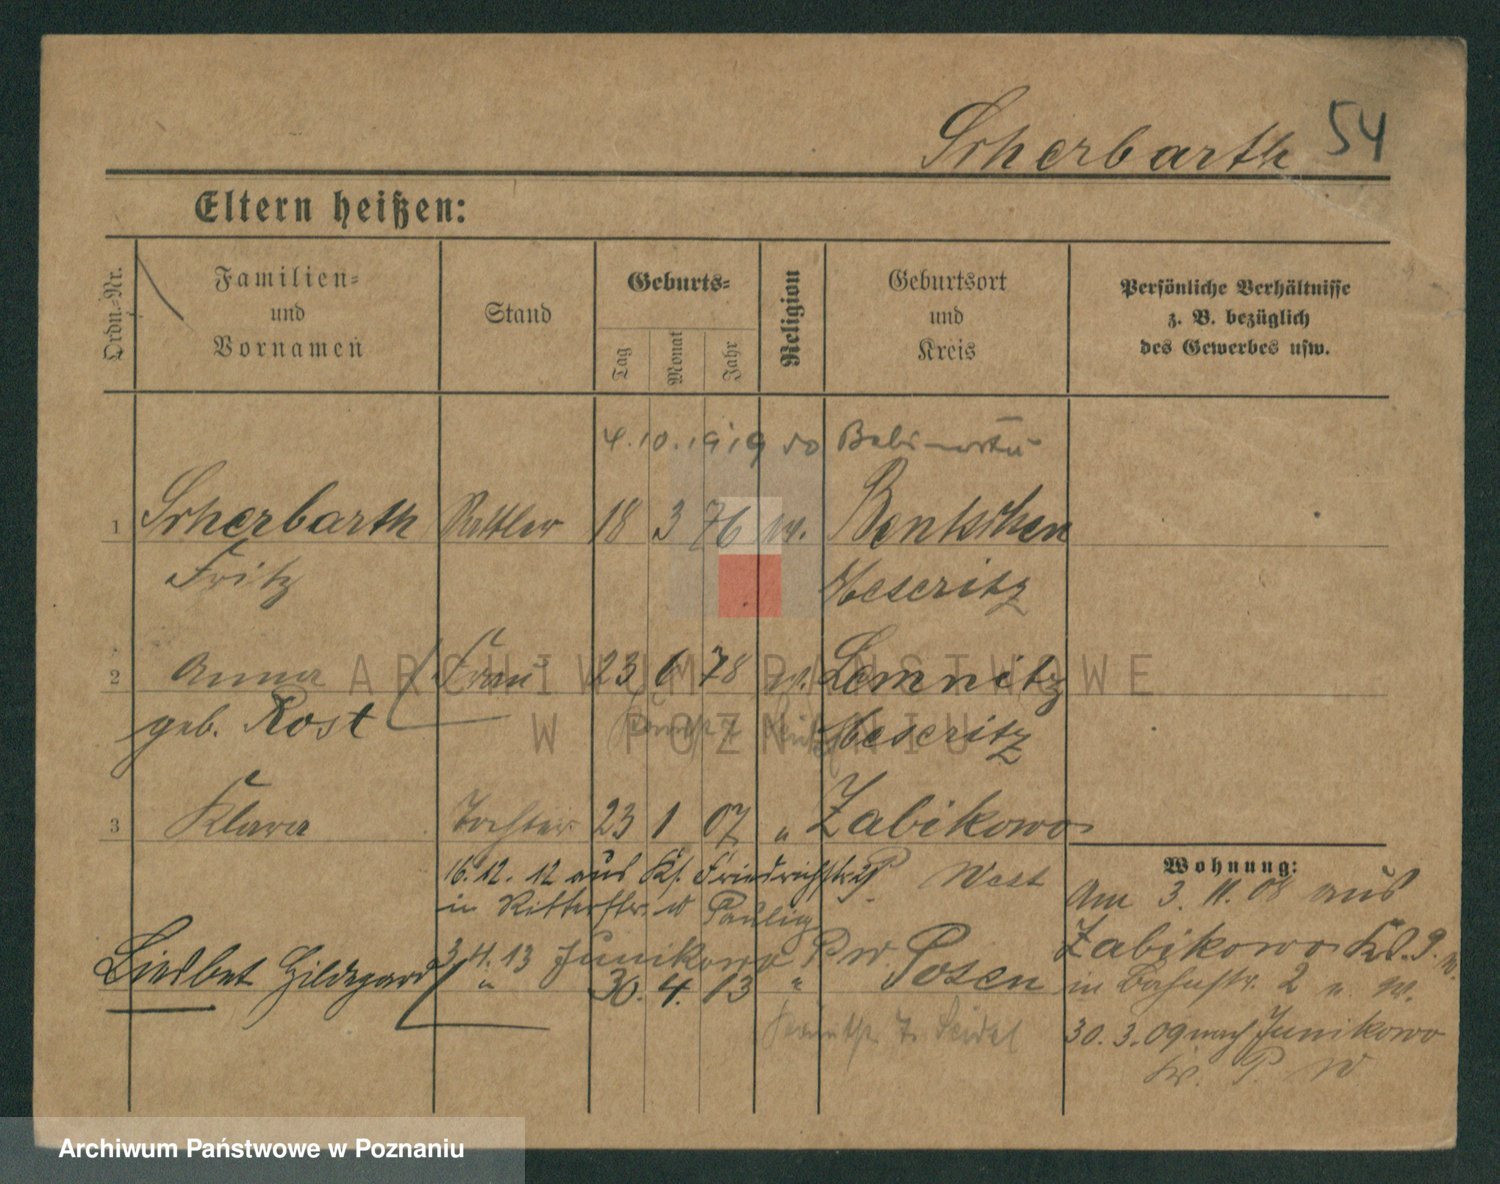 Scherbarth 54
Eltern heißen:
Ordn.-Nr.
Familien-
und
Vornamen
Stand
Geburts-
Tag
Monat
Jahr
Religion
Geburtsort
und
Kreis
Persönliche Verhältnisse
z. B. bezüglich
des Gewerbes usw.
4.10.1919
1 Scherbarth 18 3 76 Bentschen
Fritz Meseritz
2 Anna Frau 23 6 78 Lomnitz
geb. Rost Meseritz
3 Klara Tochter 23 1 07 " Zabikowo
16.12.12 aus Friedrichstr. P. West
in Ritterstr.
3.4.13 Junikowo P. W.
Liesbet Hildegard " 30. 4. 13 " Posen
Wohnung:
Am 3.11.08 aus
Zabikowo Kr. P. W.
in Bahnstr. 2
30.3.09 nach Junikowo
Kr. P. W
ARCHIWUM PAŃSTWOWE
W POZNANIU
Archiwum Państwowe w Poznaniu